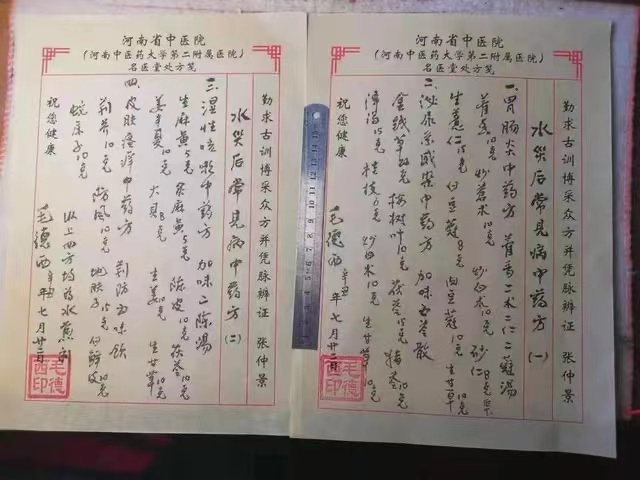 河南省中医院
(河南中医药大学第二附属医院)
名医堂处方笺
勤求古训博采众方并凭脉辨证 张仲景
水灾后常见病中药方(一)
一.胃肠炎中药方 藿香二术二仁二蔻汤
藿香10克 炒苍术10克 炒白术10克 砂仁8克
生薏仁15克 白豆蔻8克 肉豆蔻 生甘草
二.泌尿系感染中药方 加味五苓散
金钱草30克 柳树叶10克 茯苓15克 猪苓
泽泻15克 桂枝6克 炒白术10克 生甘草10克
毛德西 辛丑 七月廿二日
祝您健康
毛德西印
河南省中医院
(河南中医药大学第二附属医院)
名医堂处方笺
勤求古训博采众方并凭脉辨证 张仲景
水灾后常见病中药方(二)
三.湿性咳嗽中药方 加味二陈汤
生麻黄5克 炙麻黄5克 陈皮10克 茯苓10克
姜半夏10克 川贝8克 生姜10克 生甘草10克
四.皮肤瘙痒中药方 荆防五味饮
荆芥10克 防风10克 地肤子15克 白鲜皮10克
蛇床子10克 以上四方均为水煎剂
毛德西 辛丑 七月廿二日
祝您健康
毛德西印